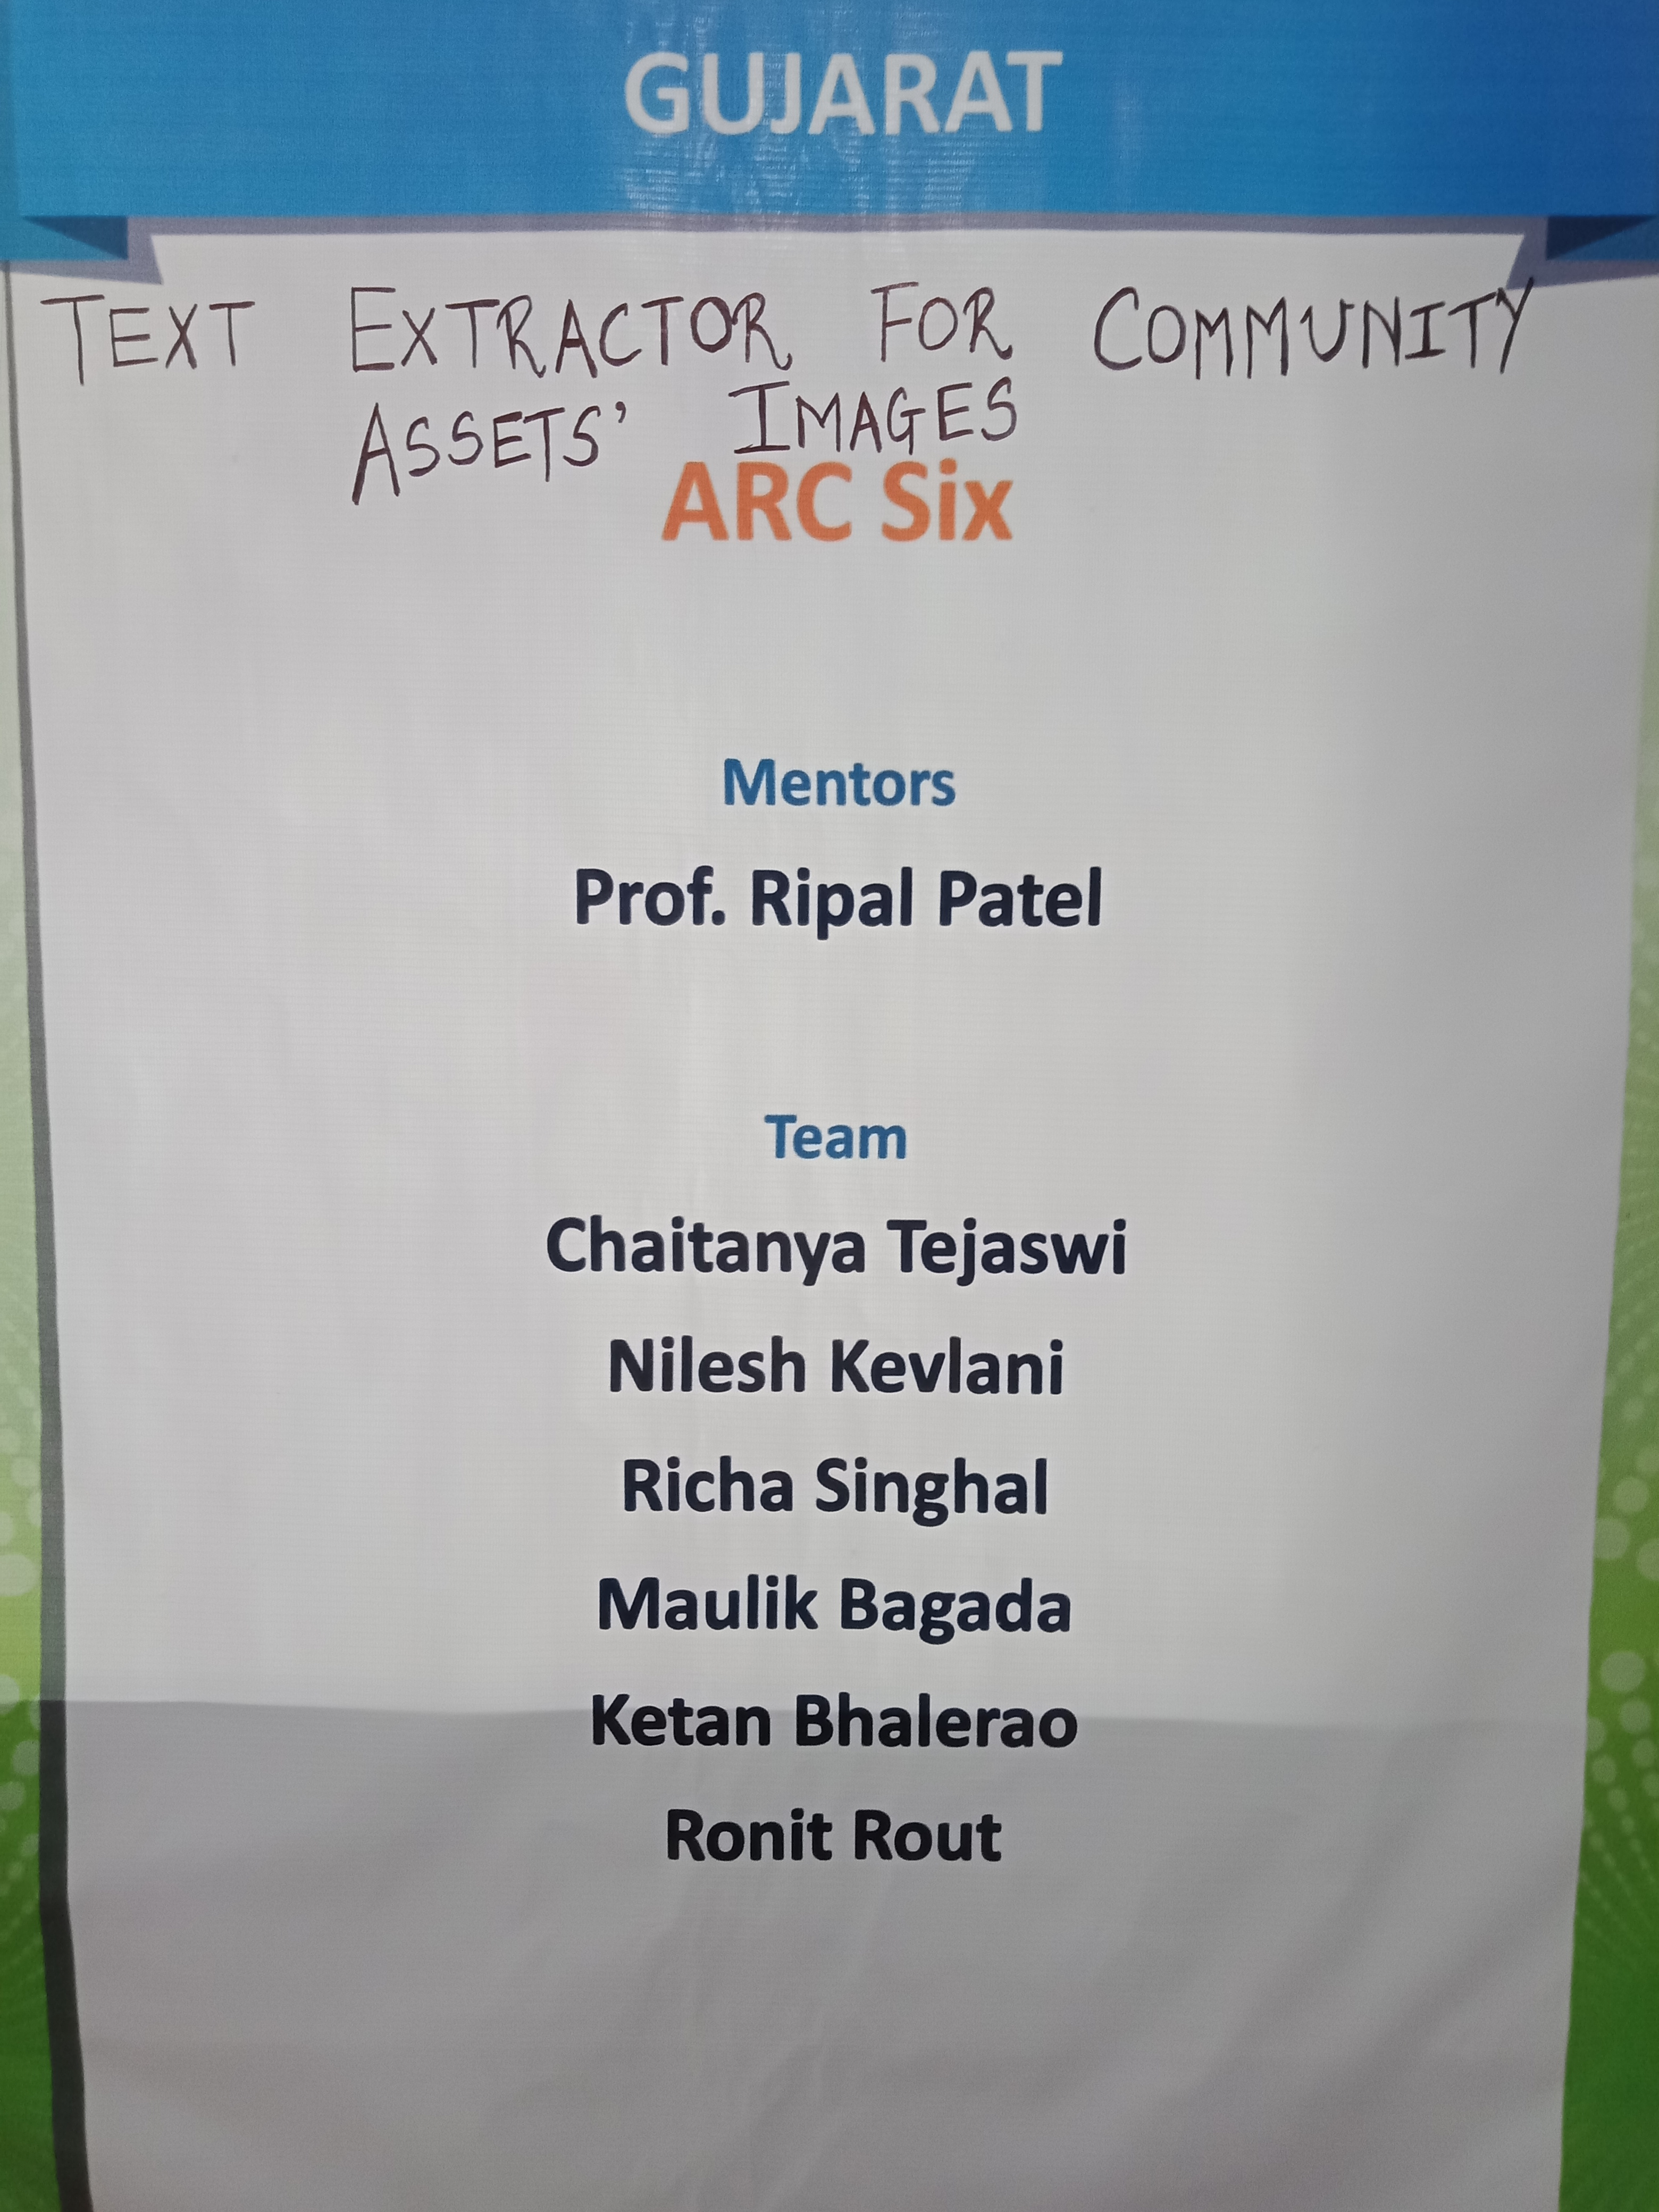 GUJARAT
TEXT EXTRACTOR FOR COMMUNITY
ASSETS' IMAGES
ARC Six
Mentors
Prof. Ripal Patel
Team
Chaitanya Tejaswi
Nilesh Kevlani
Richa Singhal
Maulik Bagada
Ketan Bhalerao
Ronit Rout